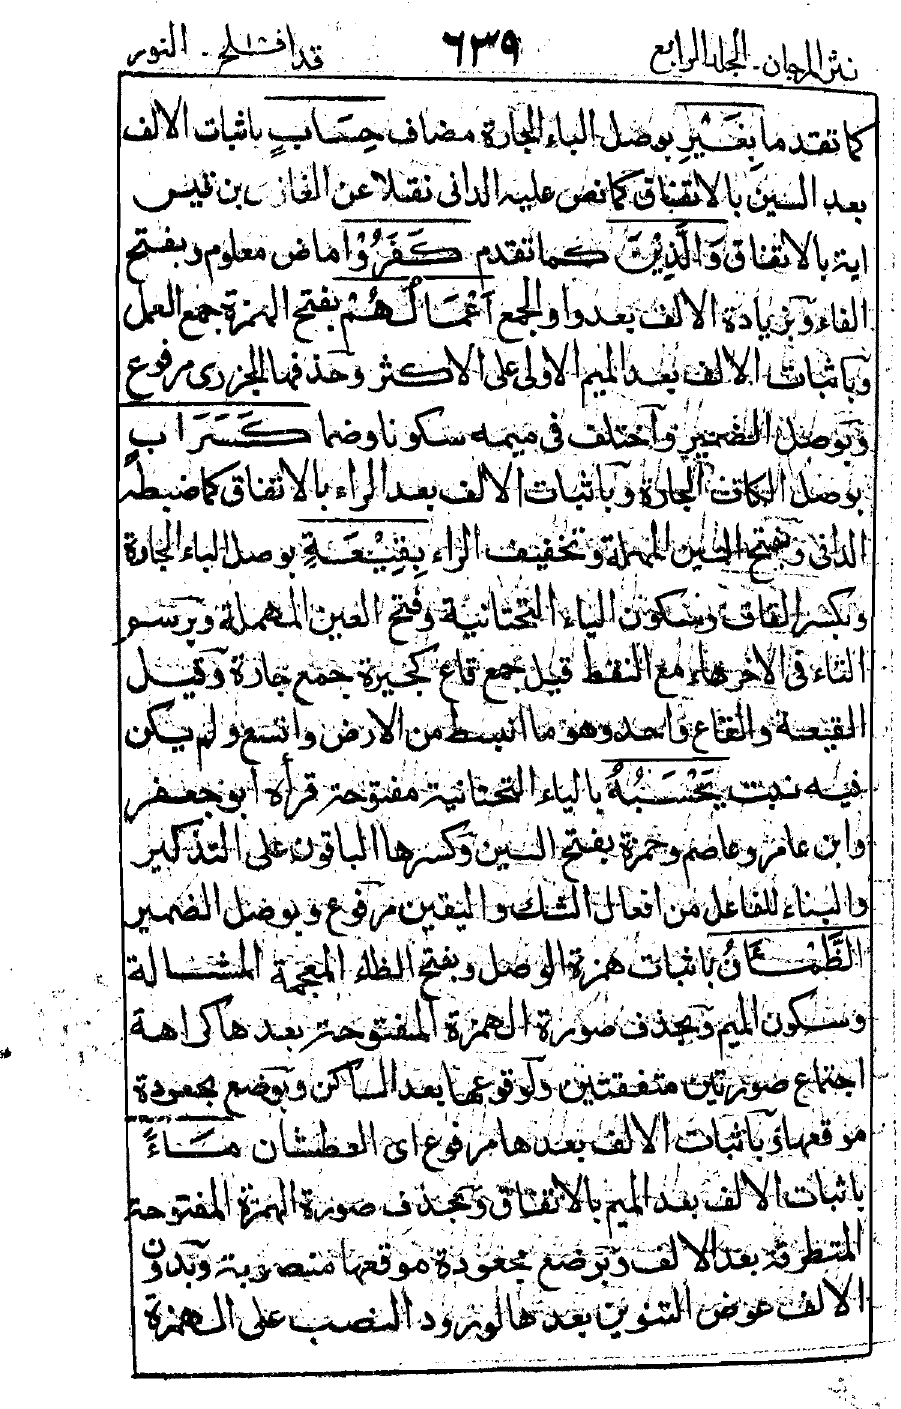 نثر المرجان ـ المجلد الرابع ٦٣٩ قد افلح ـ النور
كما تقدم ما بِغَيْرِ بوصل الباء الجارة مضاف حِسَابٍ باثبات الالف
بعد السين بالاتفاق كما نص عليه الدانى نقلا عن الغازى بن قيس
اية بالاتفاق وَالَّذِيْنَ كما تقدم كَفَرُوْا ماض معلوم وبفتح
الفاء وبزيادة الالف بعد واو الجمع اَعْمَالُهُمْ بفتح الهمزة جمع العمل
وباثبات الالف بعد الميم الاولى على الاكثر وحذفها الجزرى مرفوع
وبوصل الضمير واختلف فى ميمه سكونا وضما كَسَرَابٍ
بوصل الكاف الجارة وباثبات الالف بعد الراء بالاتفاق كما ضبطه
الدانى وبفتح السين المهملة وتخفيف الراء بِقِيْعَةٍ بوصل الباء الجارة
وبكسر القاف وسكون الياء التحتانية وفتح العين المهملة وبرسم
التاء فى الاخر هاء مع النقط قيل جمع قاع كجيرة جمع جارة وقيل
القيعة والقاع واحد وهو ما انبسط من الارض واتسع ولم يكن
فيه نبت يَحْسَبُهُ بالياء التحتانية مفتوحة قرأه ابو جعفر
وابن عامر وعاصم وحمزة بفتح السين وكسرها الباقون على التذكير
والبناء للفاعل من افعال الشك واليقين مرفوع وبوصل الضمير
الظَّمْـَٔانُ باثبات همزة الوصل وبفتح الظاء المعجمة المشالة
وسكون الميم وبحذف صورة الهمزة المفتوحة بعدها كراهة
اجتماع صورتين متفقتين ولوقوعها بعد الساكن وبوضع مجعودة
موقعها وباثبات الالف بعدها مرفوع اى العطشان مَاءً
باثبات الالف بعد الميم بالاتفاق وبحذف صورة الهمزة المفتوحة
المتطرفة بعد الالف وبوضع مجعودة موقعها منصوبة وبدون
الالف عوض التنوين بعدها لورود النصب على الهمزة